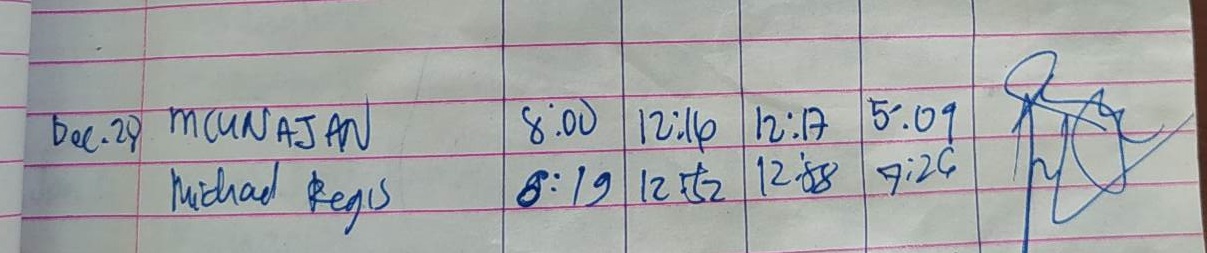 Dec. 29 MCUNAJAN 8:00 12:16 12:17 5:09
Michael Regis 8:19 12:52 12:58 7:26